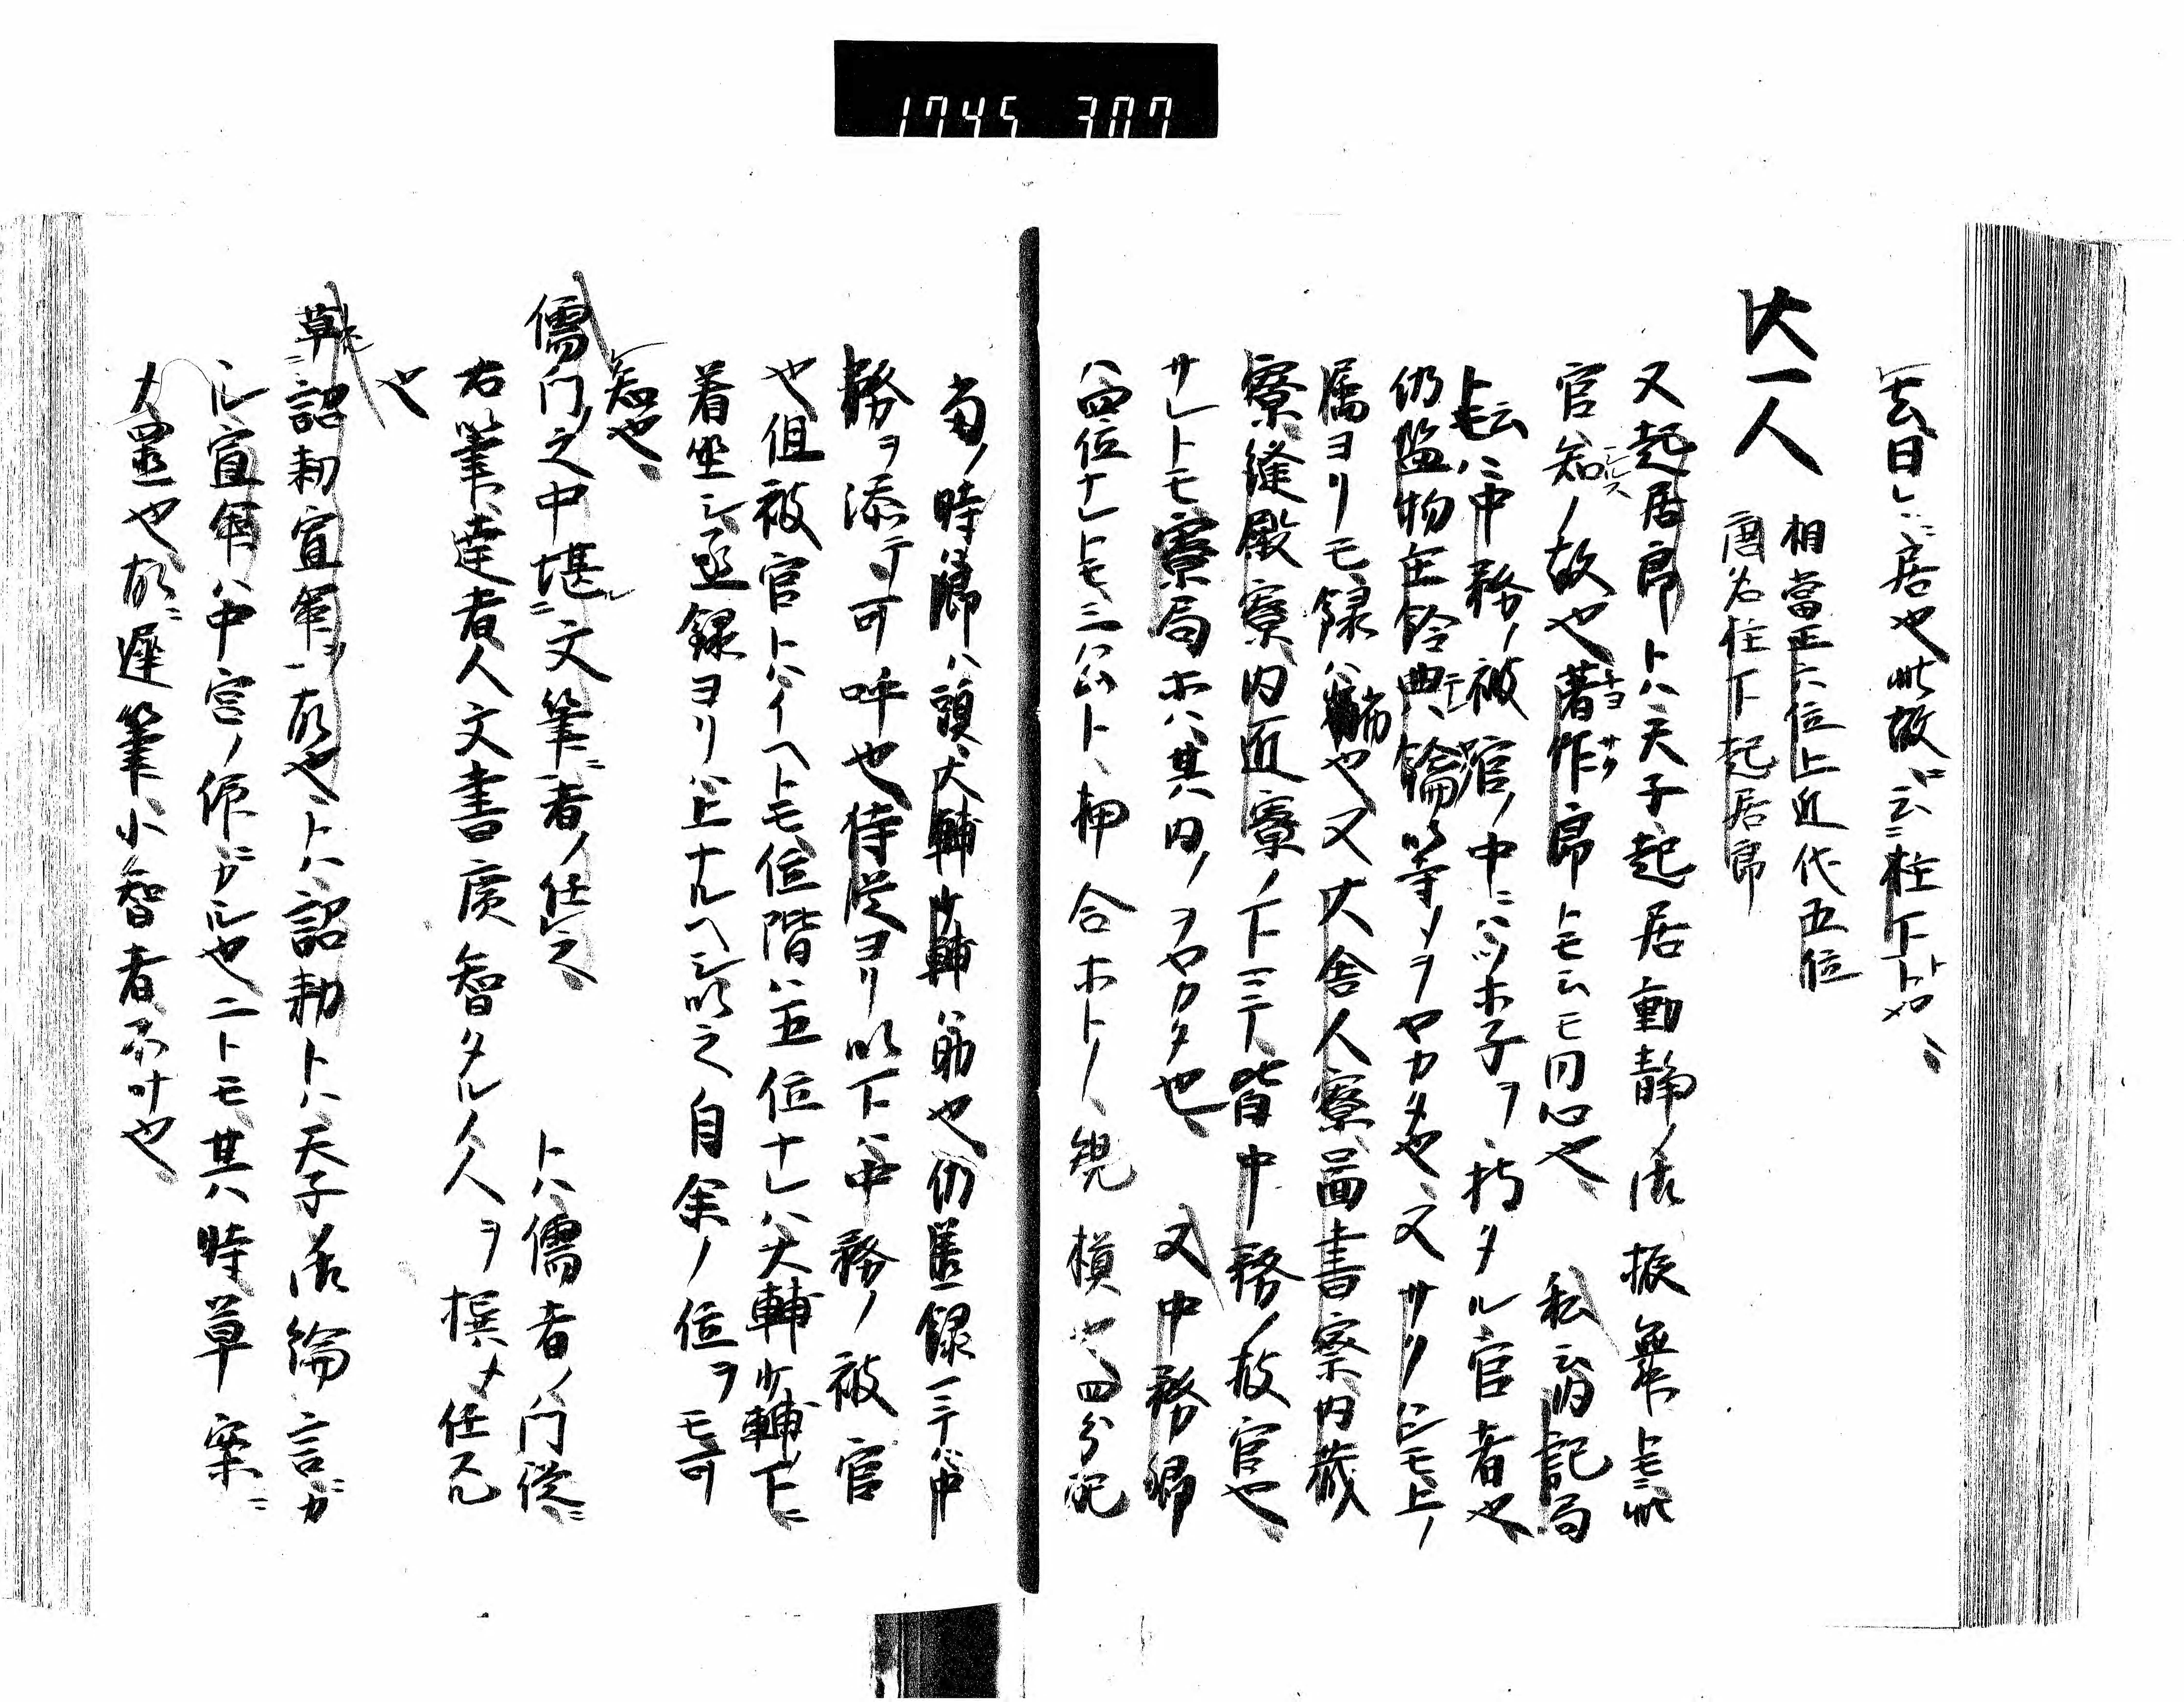 1745 307
云日ㇾハ居也此故ニ云柱下ト也、
大一人
相當正六位上近代五位
唐名柱下起居郎
又起居郎トハ天子起居動静ノ法振舞トモニ此
官知ノ故也著作郎トモ云モ同心也、私云内記局
ト云ハ中務ノ被官ノ中ニハツホ子ヲ持タル官者也
仍監物主鈴典鑰等ノヲヤカタ也、又サリシモ上ノ
属ヨリモ録ハ也又大舎人寮啚書寮内蔵
寮縫殿寮内匠寮ノ下三千人皆中務ノ被官也、
サレトモ寮局ホハ其内ノヲヤカタ也、又中務卿
ハ四位ナレトモ三公ト、押合ホトノ規模也四分配
當ノ時卿ハ頭、大輔少輔ハ助也仍丞録三ハ中
務ヲ添テ可呼也侍従ヨリ以下ハ中務ノ被官
也但被官トハイヘトモ位階ハ五位ナレハ大輔少輔下ニ
着坐シ丞録ヨリハ上ナルヘシ以之自余ノ位ヲモ可
知也、
儒門ノ之中堪ニ文筆ニ者ノ任之、トハ儒者ノ門徒ニ
右筆、達者人文書廣智タル人ヲ撰メ任スル
也
草ニ詔勅宣命ヲ一故也、トハ詔勅トハ天子ノ法綸言ガ
ル宣命ハ中宮ノ作ガル也ニトモ其ハ時草案ニ
大畳也故ニ遅筆小智者不叶也、